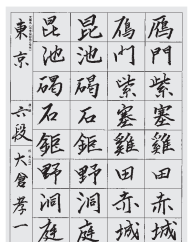 鴈門紫塞雞田赤城
鴈門紫塞雞田赤城
昆池碣石鉅野洞庭
昆池碣石鉅野洞庭
東京 六段 大倉孝一